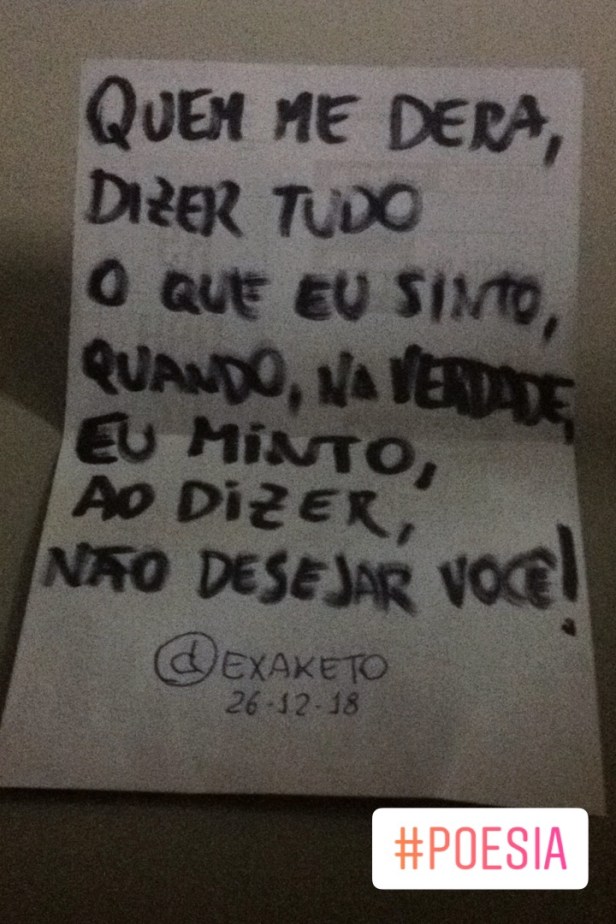 QUEM ME DERA,
DIZER TUDO
O QUE EU SINTO,
QUANDO, NA VERDADE,
EU MINTO,
AO DIZER,
NÃO DESEJAR VOCÊ!
@EXAKETO
26-12-18
#POESIA